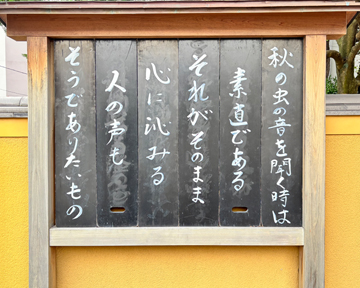 秋の虫の音を聞く時は
素直である
それがそのまま
心に沁みる
人の声も
そうでありたいもの